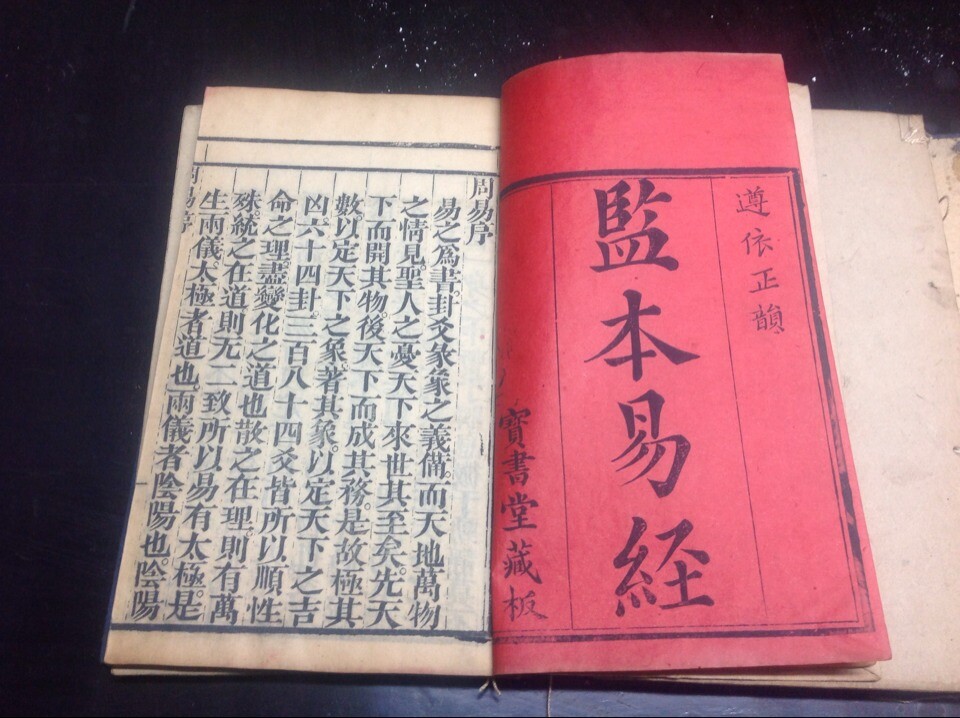 遵依正韻
監本易経
寶書堂藏板
周易序
易之爲書。卦爻彖象之義備。而天地萬物
之情見。聖人之憂天下來世其至矣。先天
下而開其物。後天下而成其務。是故極其
數。以定天下之象。著其象。以定天下之吉
凶。六十四卦。三百八十四爻。皆所以順性
命之理。盡變化之道也。散之在理。則有萬
殊。統之在道。則无二致。所以易有太極。是
生兩儀。太極者道也。兩儀者陰陽也。陰陽
周易序